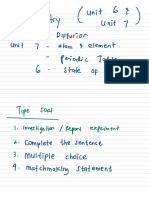 try ( unit 6 &
unit 7 )
Diffusion
unit 7 - atom & element
- Periodic Table
6 - State of
Tipe Soal
1. Investigation / Report experiment
2. Complete the sentence
3. Multiple choice
4. matchmaking statement